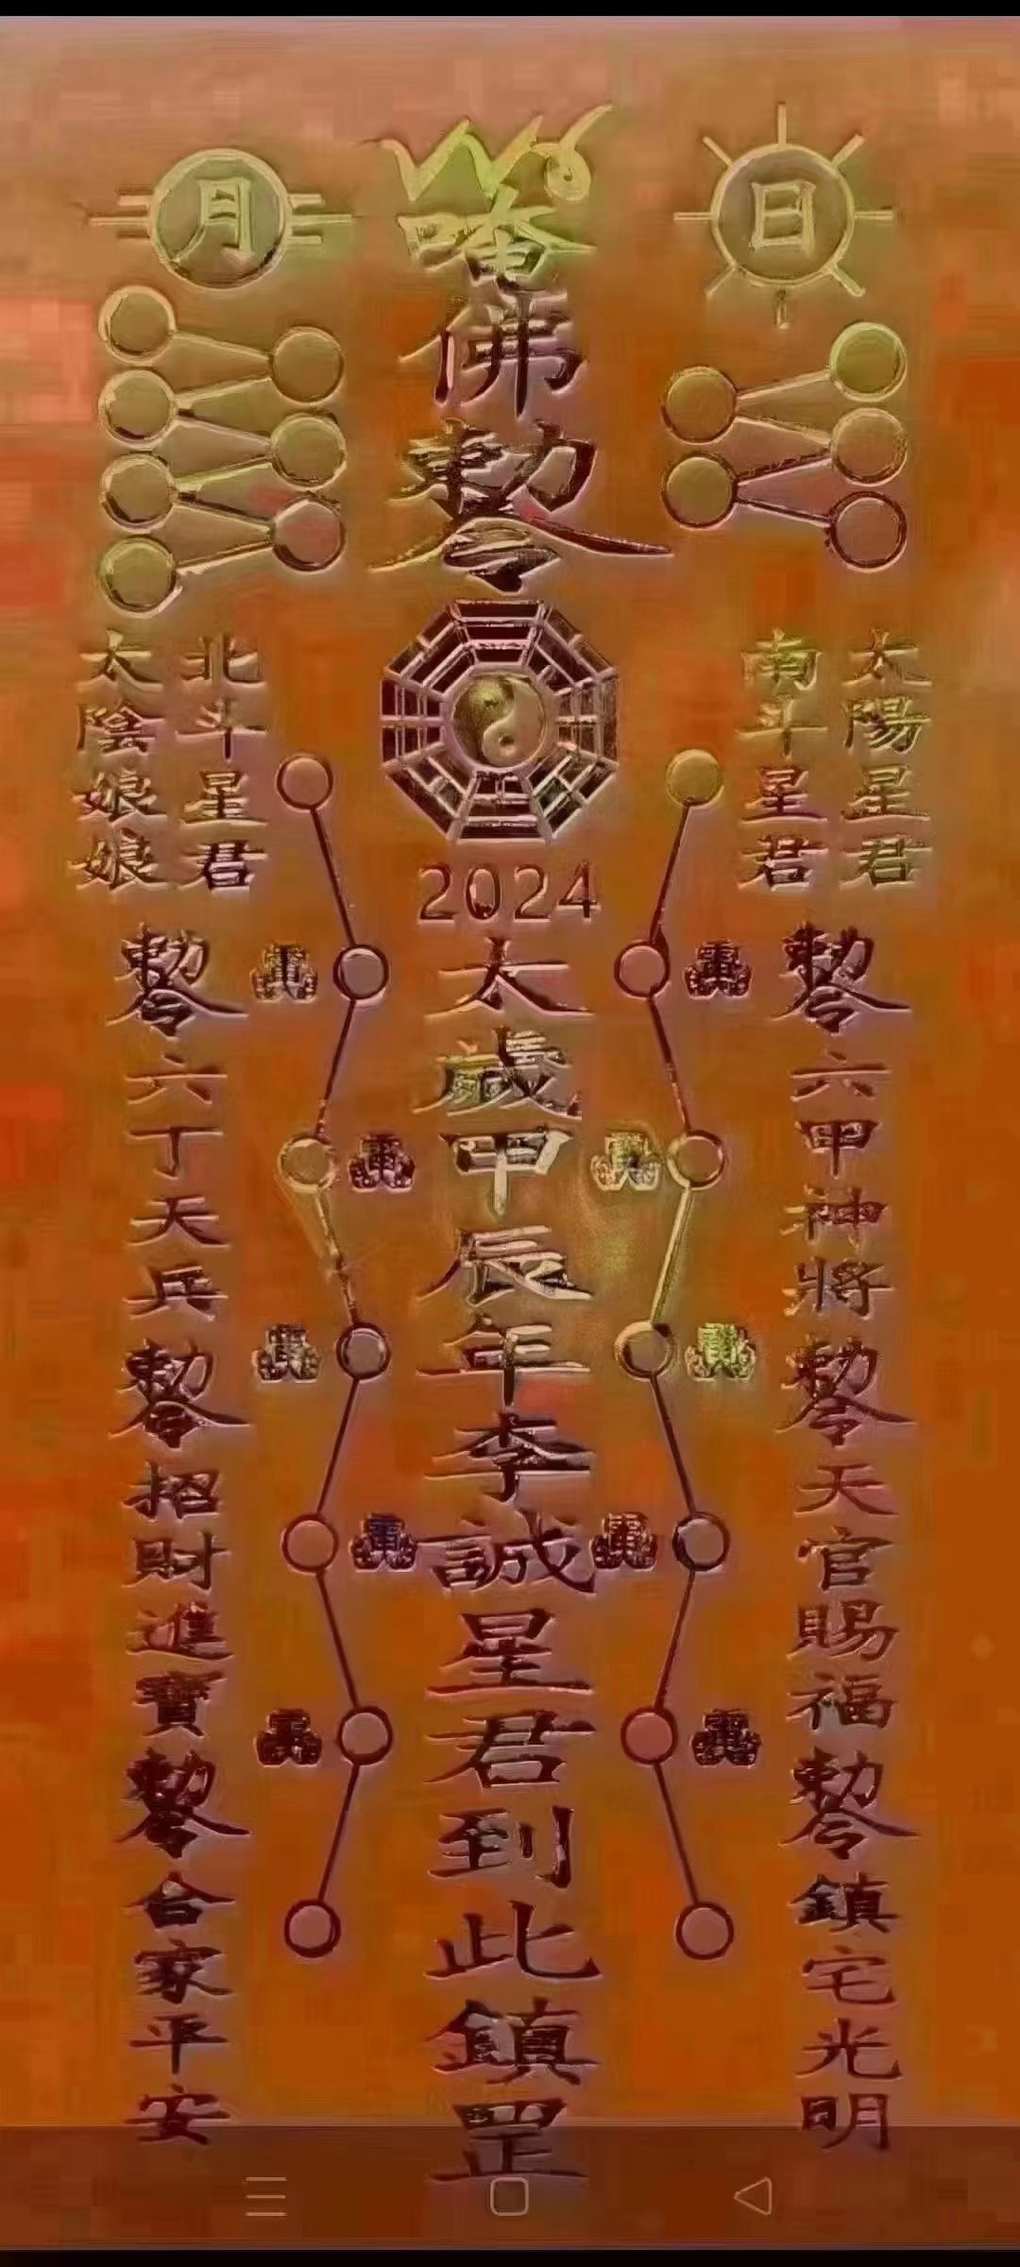 日
唵
佛
勅令
月
太陽星君
南斗星君
北斗星君
太陰娘娘
2024
太歲甲辰年李誠星君到此鎮罡
勅令六甲神將勅令天官賜福勅令鎮宅光明
勅令六丁天兵勅令招財進寶勅令合家平安